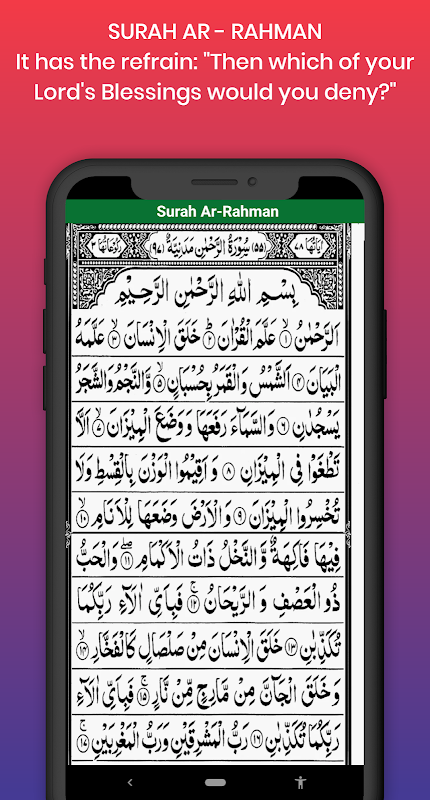 SURAH AR - RAHMAN
It has the refrain: "Then which of your
Lord's Blessings would you deny?"
Surah Ar-Rahman
اٰيَاتُهَا ٧٨ (٥٥) سُوْرَةُ الرَّحْمٰنِ مَدَنِيَّةٌ (٩٧) رُكُوْعَاتُهَا ٣
بِسْمِ اللّٰهِ الرَّحْمٰنِ الرَّحِيْمِ
اَلرَّحْمٰنُ ۙ﴿١﴾ عَلَّمَ الْقُرْاٰنَ ؕ﴿٢﴾ خَلَقَ الْاِنْسَانَ ۙ﴿٣﴾ عَلَّمَهُ
الْبَيَانَ ﴿٤﴾ اَلشَّمْسُ وَالْقَمَرُ بِحُسْبَانٍ ۪﴿٥﴾ وَّالنَّجْمُ وَالشَّجَرُ
يَسْجُدٰنِ ﴿٦﴾ وَالسَّمَآءَ رَفَعَهَا وَوَضَعَ الْمِيْزَانَ ۙ﴿٧﴾ اَلَّا
تَطْغَوْا فِي الْمِيْزَانِ ﴿٨﴾ وَاَقِيْمُوا الْوَزْنَ بِالْقِسْطِ وَلَا
تُخْسِرُوا الْمِيْزَانَ ﴿٩﴾ وَالْاَرْضَ وَضَعَهَا لِلْاَنَامِ ۙ﴿١٠﴾
فِيْهَا فَاكِهَةٌ وَّالنَّخْلُ ذَاتُ الْاَكْمَامِ ۖ﴿١١﴾ وَالْحَبُّ
ذُو الْعَصْفِ وَالرَّيْحَانُ ۚ﴿١٢﴾ فَبِاَيِّ اٰلَآءِ رَبِّكُمَا
تُكَذِّبٰنِ ﴿١٣﴾ خَلَقَ الْاِنْسَانَ مِنْ صَلْصَالٍ كَالْفَخَّارِ ۙ﴿١٤﴾
وَخَلَقَ الْجَآنَّ مِنْ مَّارِجٍ مِّنْ نَّارٍ ۚ﴿١٥﴾ فَبِاَيِّ اٰلَآءِ
رَبِّكُمَا تُكَذِّبٰنِ ﴿١٦﴾ رَبُّ الْمَشْرِقَيْنِ وَرَبُّ الْمَغْرِبَيْنِ ۚ﴿١٧﴾